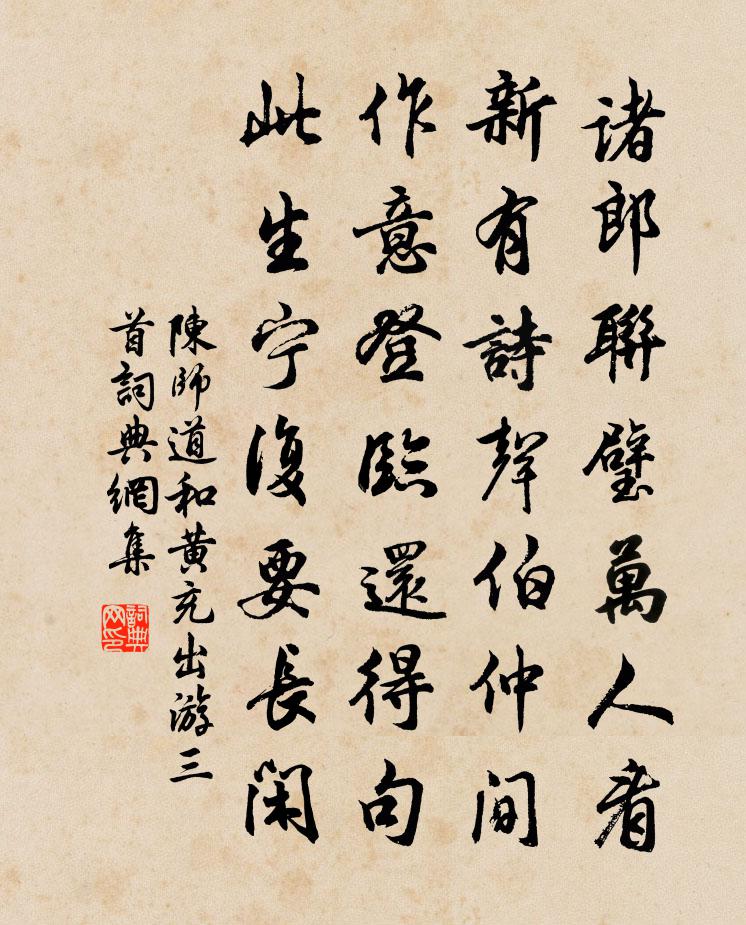 诸郎聯璧萬人看
新有詩聲伯仲间
作意登臨還得句
此生宁復要長闲
陳師道和黄充出游三
首詞典網集
詞典網印